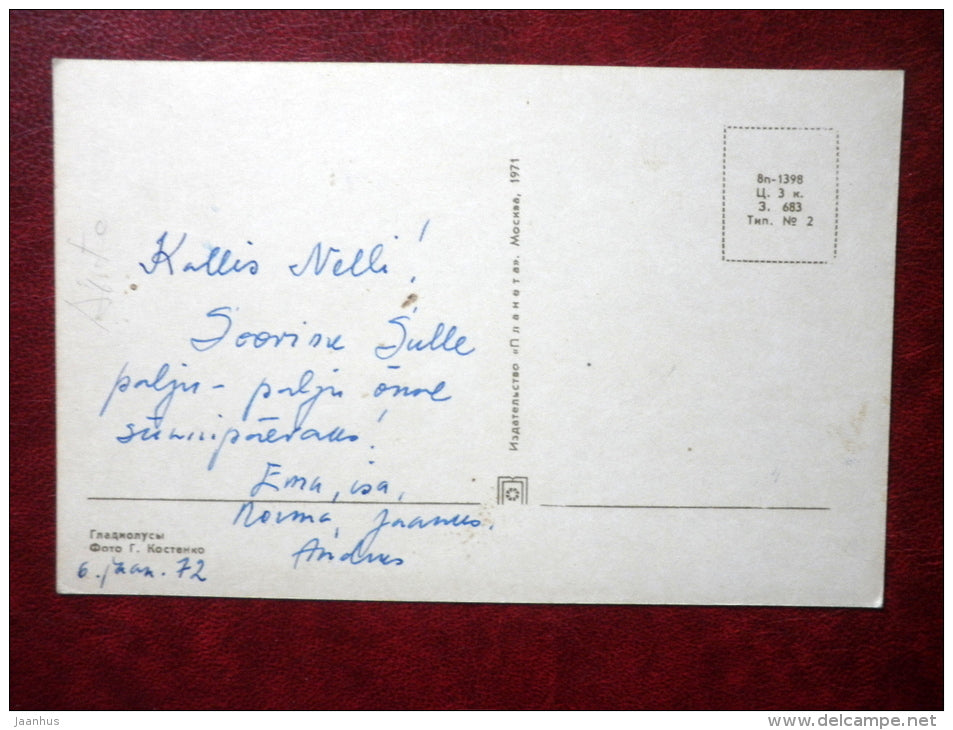 Kallis Nelli!
Soovime Sulle
palju - palju õnne
sünnipäevaks!
Ema, isa,
Norma, Jaanus.
Andrus
Гладиолусы
Фото Г. Костенко
6. jaan. 72
Издательство «Планета». Москва, 1971
8п-1398
Ц. 3 к.
З. 683
Тип. № 2
Jaanhus
www.delcampe.net